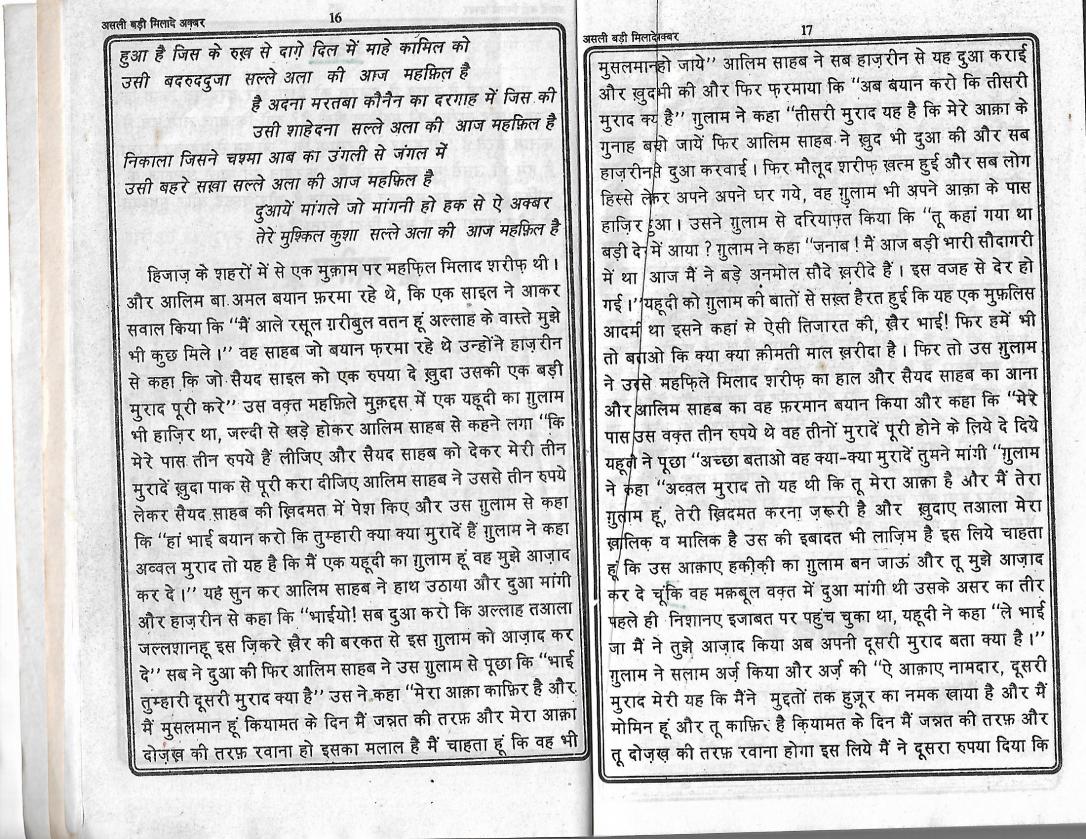 असली बड़ी मिलादे अक्बर
16
हुआ है जिस के रुख़ से दाग़े दिल में माहे कामिल को
उसी बदरुददुजा सल्ले अला की आज महफ़िल है
है अदना मरतबा कौनैन का दरगाह में जिस की
उसी शाहेदना सल्ले अला की आज महफ़िल है
निकाला जिसने चश्मा आब का उंगली से जंगल में
उसी बहरे सख़ा सल्ले अला की आज महफ़िल है
दुआयें मांगले जो मांगनी हो हक से ऐ अक्बर
तेरे मुश्किल कुशा सल्ले अला की आज महफ़िल है
हिजाज़ के शहरों में से एक मुक़ाम पर महफ़िल मिलाद शरीफ़ थी।
और आलिम बा अमल बयान फ़रमा रहे थे, कि एक साइल ने आकर
सवाल किया कि “मैं आले रसूल ग़रीबुल वतन हूं अल्लाह के वास्ते मुझे
भी कुछ मिले।” वह साहब जो बयान फ़रमा रहे थे उन्होंने हाज़रीन
से कहा कि जो सैयद साइल को एक रुपया दे ख़ुदा उसकी एक बड़ी
मुराद पूरी करे” उस वक़्त महफ़िले मुक़द्दस में एक यहूदी का ग़ुलाम
भी हाज़िर था, जल्दी से खड़े होकर आलिम साहब से कहने लगा “कि
मेरे पास तीन रुपये हैं लीजिए और सैयद साहब को देकर मेरी तीन
मुरादें ख़ुदा पाक से पूरी करा दीजिए आलिम साहब ने उससे तीन रुपये
लेकर सैयद साहब की ख़िदमत में पेश किए और उस ग़ुलाम से कहा
कि “हां भाई बयान करो कि तुम्हारी क्या क्या मुरादें हैं ग़ुलाम ने कहा
अव्वल मुराद तो यह है कि मैं एक यहूदी का ग़ुलाम हूं वह मुझे आज़ाद
कर दे।” यह सुन कर आलिम साहब ने हाथ उठाया और दुआ मांगी
और हाज़रीन से कहा कि “भाईयो! सब दुआ करो कि अल्लाह तआला
जल्लशानहू इस ज़िकरे ख़ैर की बरकत से इस ग़ुलाम को आज़ाद कर
दे” सब ने दुआ की फिर आलिम साहब ने उस ग़ुलाम से पूछा कि “भाई
तुम्हारी दूसरी मुराद क्या है” उस ने कहा “मेरा आक़ा काफ़िर है और
मैं मुसलमान हूं कियामत के दिन मैं जन्नत की तरफ़ और मेरा आक़ा
दोज़ख़ की तरफ़ रवाना हो इसका मलाल है मैं चाहता हूं कि वह भी
असली बड़ी मिलादे अक्बर
17
मुसलमान हो जाये” आलिम साहब ने सब हाज़रीन से यह दुआ कराई
और ख़ुद भी की और फिर फ़रमाया कि “अब बयान करो कि तीसरी
मुराद क्या है” ग़ुलाम ने कहा “तीसरी मुराद यह है कि मेरे आक़ा के
गुनाह बख़्शे जायें फिर आलिम साहब ने ख़ुद भी दुआ की और सब
हाज़रीन से दुआ करवाई। फिर मौलूद शरीफ़ ख़त्म हुई और सब लोग
हिस्से लेकर अपने अपने घर गये, वह ग़ुलाम भी अपने आक़ा के पास
हाज़िर हुआ। उसने ग़ुलाम से दरियाफ़्त किया कि “तू कहां गया था
बड़ी देर में आया? ग़ुलाम ने कहा “जनाब! मैं आज बड़ी भारी सौदागरी
में था आज मैं ने बड़े अनमोल सौदे ख़रीदे हैं। इस वजह से देर हो
गई।” यहूदी को ग़ुलाम की बातों से सख़्त हैरत हुई कि यह एक मुफ़लिस
आदमी था इसने कहां से ऐसी तिजारत की, ख़ैर भाई! फिर हमें भी
तो बताओ कि क्या क्या क़ीमती माल ख़रीदा है। फिर तो उस ग़ुलाम
ने उससे महफ़िले मिलाद शरीफ़ का हाल और सैयद साहब का आना
और आलिम साहब का वह फ़रमान बयान किया और कहा कि “मेरे
पास उस वक़्त तीन रुपये थे वह तीनों मुरादें पूरी होने के लिये दे दिये
यहूदी ने पूछा “अच्छा बताओ वह क्या-क्या मुरादें तुमने मांगी “ग़ुलाम
ने कहा “अव्वल मुराद तो यह थी कि तू मेरा आक़ा है और मैं तेरा
ग़ुलाम हूं, तेरी ख़िदमत करना ज़रूरी है और ख़ुदाए तआला मेरा
ख़ालिक व मालिक है उस की इबादत भी लाज़िम है इस लिये चाहता
हूं कि उस आक़ाए हकी़क़ी का ग़ुलाम बन जाऊं और तू मुझे आज़ाद
कर दे चूंकि वह मक़बूल वक़्त में दुआ मांगी थी उसके असर का तीर
पहले ही निशानए इजाबत पर पहुंच चुका था, यहूदी ने कहा “ले भाई
जा मैं ने तुझे आज़ाद किया अब अपनी दूसरी मुराद बता क्या है।”
ग़ुलाम ने सलाम अर्ज़ किया और अर्ज़ की “ऐ आक़ाए नामदार, दूसरी
मुराद मेरी यह कि मैंने मुद्दतों तक हुज़ूर का नमक खाया है और मैं
मोमिन हूं और तू काफ़िर है क़ियामत के दिन मैं जन्नत की तरफ़ और
तू दोज़ख़ की तरफ़ रवाना होगा इस लिये मैं ने दूसरा रुपया दिया कि